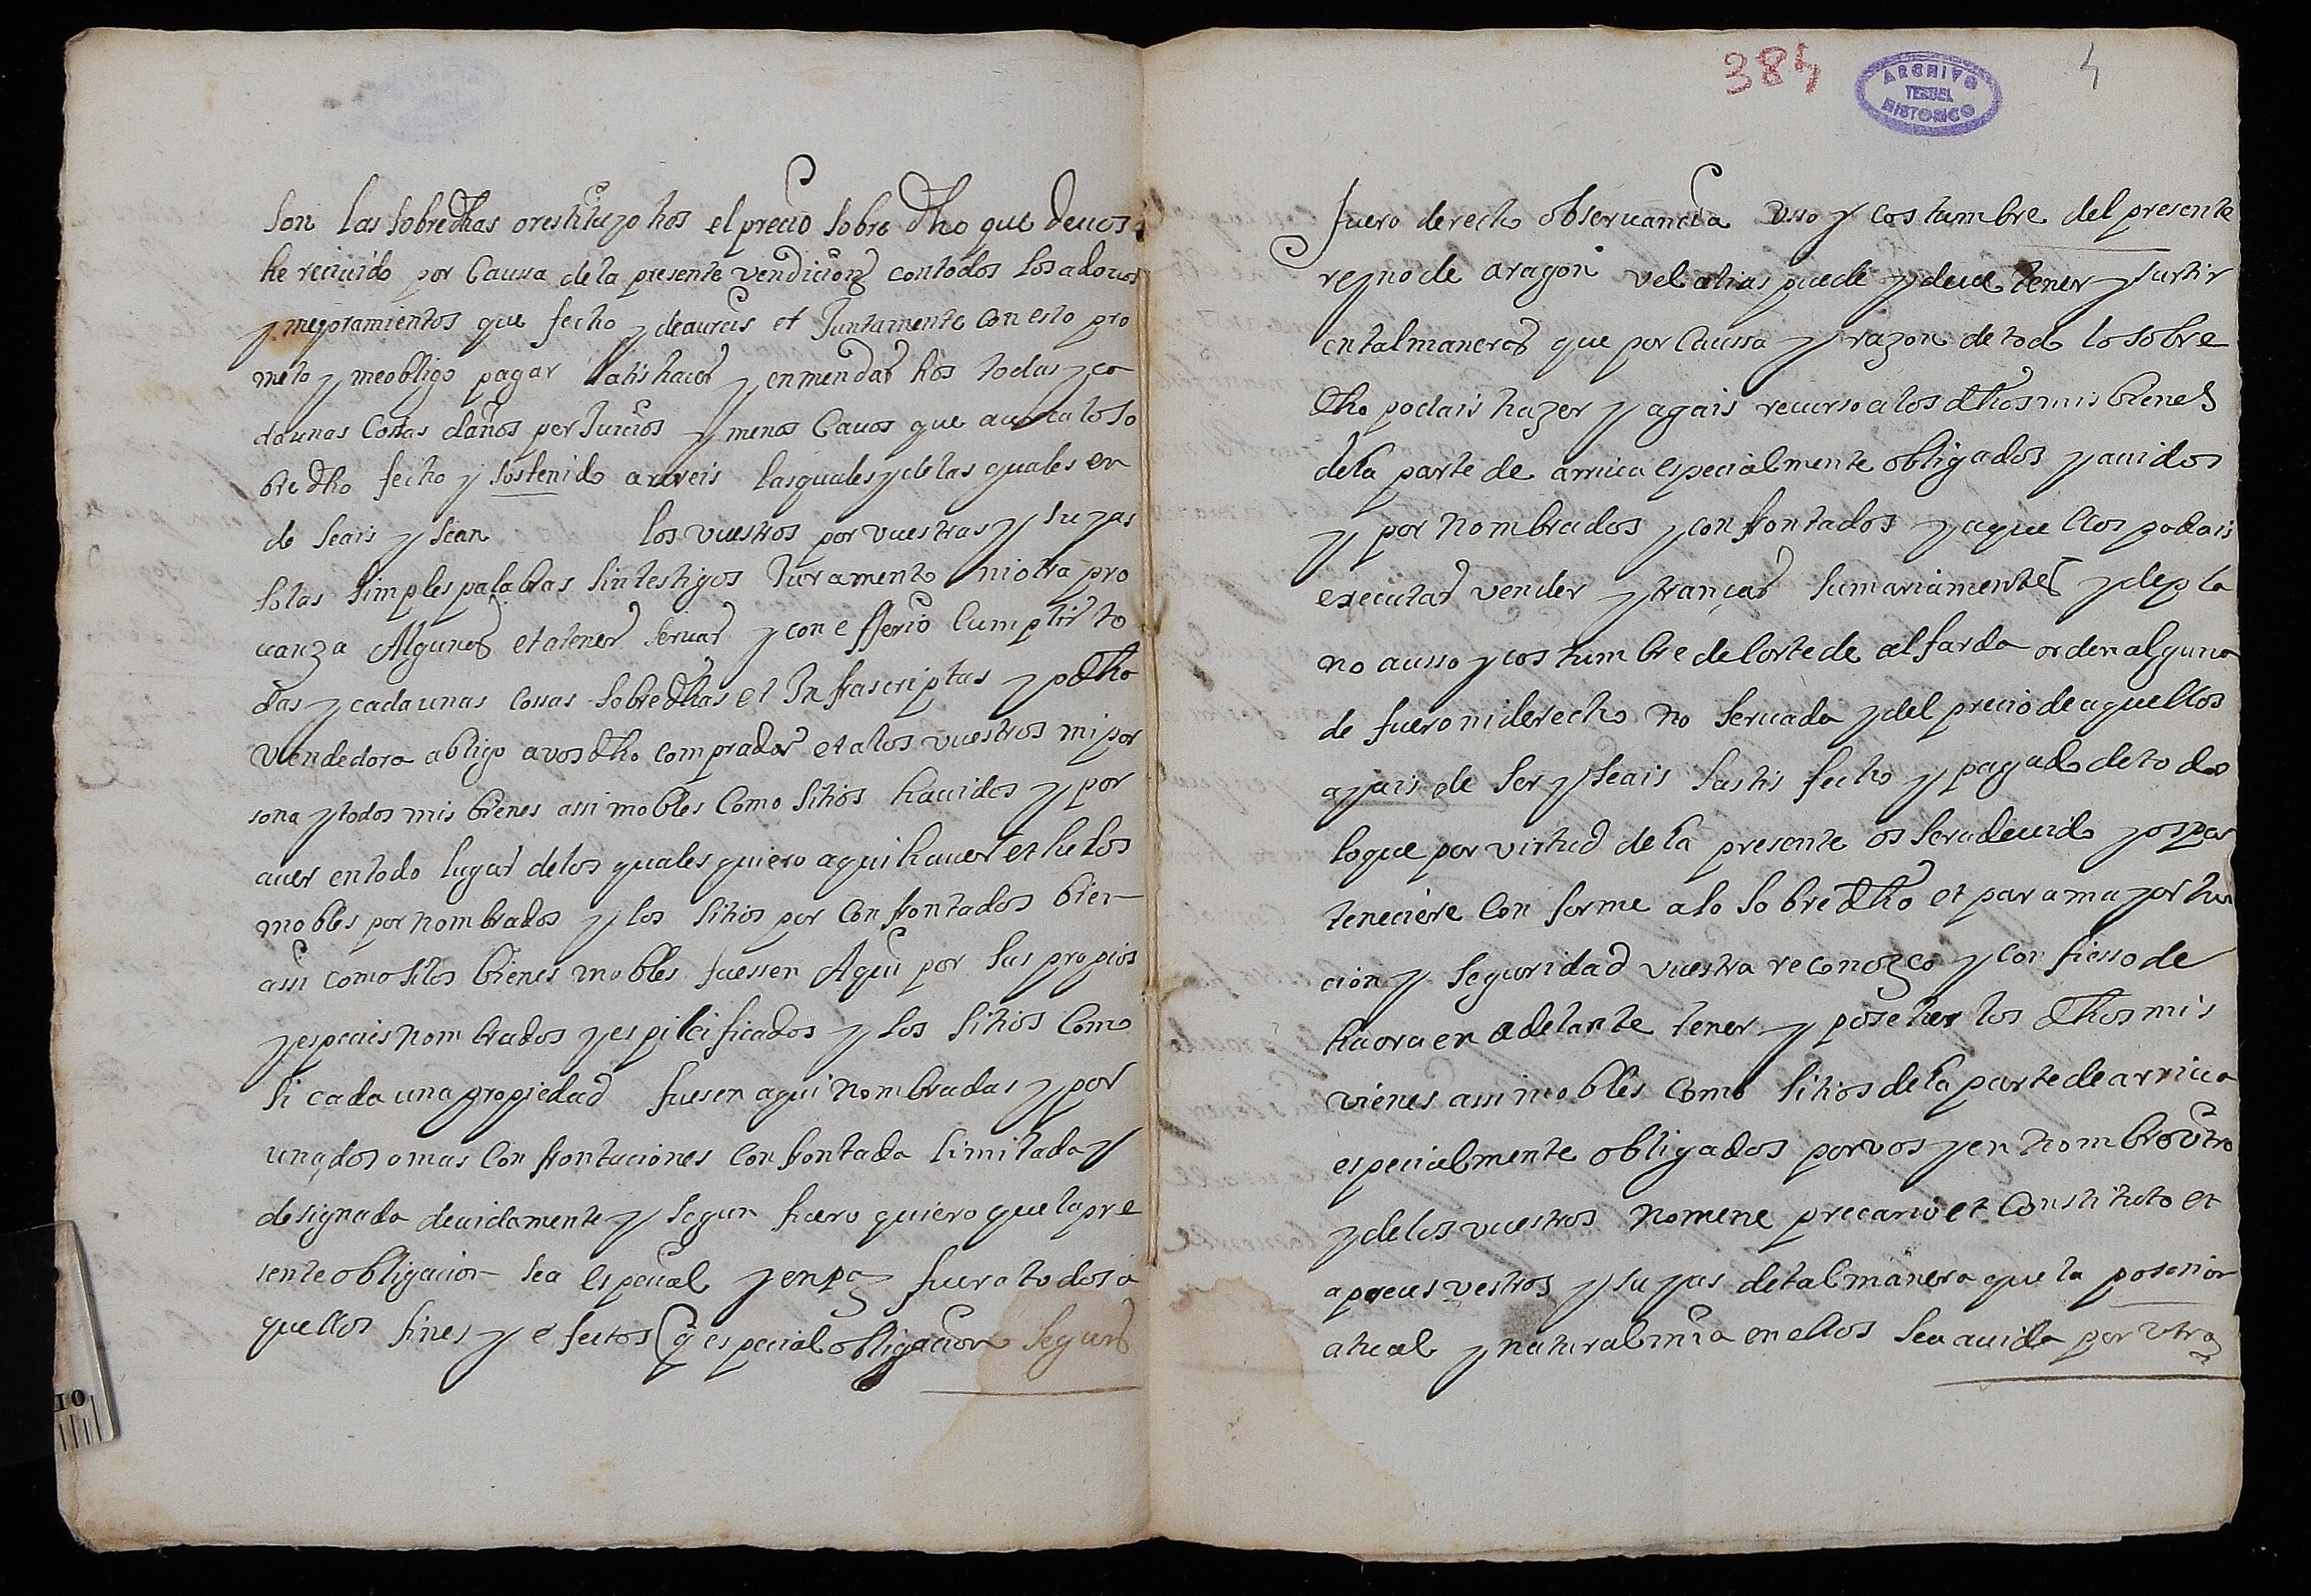 son las sobredhas o restituyo hos el precio sobre dho que de vos
he reciuido por Caussa de la presente vendicion con todos los adouos
y mejoramientos que fecho y de aureis et Juntamente con esto pro
meto y me obligo pagar satishacer y enmendar hos todas y ca
da unas Costas daños perJuicios y menos Cauos que acerca lo so
bredho fecho y sostenido aureis las quales y de las quales en
de seais y sean los vuestros por vuestras y suyas
solas simples palabras sin testigos Juramento ni otra pro
uanza Alguna et a tener seruar y con efferto Cumplir to
das y cada unas cossas sobredhas et Infrascriptas yo dha
Vendedora obligo a vos dho comprador et a los vuestros mi per
sona y todos mis bienes assi mobles Como sitios hauidos y por
auer en todo lugar de los quales quiero aqui hauer et he los
mobles por nombrados y los sitios por Confrontados bien
assi como si los bienes mobles fuessen Aqui por sus propios
y especies nombrados y espilcificados y los sitios Como
si cada una propiedad fuesen aqui nombradas y por
una dos o mas Confrontaciones Confrontada limitada y
designada deuidamente y segun fuero quiero que la pre
sente obligacion sea especial y en pa fuera todos a
quellos fines y efectos q especial obligacion segun
384
ARCHIVO
TERUEL
HISTORICO
4
fuero derecho obseruancia Usso y costumbre del presente
reyno de aragon vel alias puede y deue tener y surtir
en tal manera que por Caussa y razon de todo lo sobre
dho podais hazer y agais recurso a los dhos mis bienes
de la parte de arriua especialmente obligados y auidos
y por nombrados y confrontados y aquellos podais
executar vender y trançar sumariamente y de pla
no a usso y costumbre de Corte de alfarda orden alguna
de fuero ni derecho no seruada y del precio de aquellos
ayais de ser y seais sastisfecho y pagado de todo
lo que por virtud de la presente os sera deuido y os per
teneciere Conforme a lo sobredho et para mayor tui
cion y seguridad vuestra reconozco y confiesso de
haora en adelante tener y poseher los dhos mis
vienes assi mobles como sitios de la parte de arriua
especialmente obligados por vos y en nombre vtro
y de los vuestros nomine precario et Constituto et
apreus vestros y suyas de tal manera que la posesion
atual y natural mia en ellos sea auida por vtra